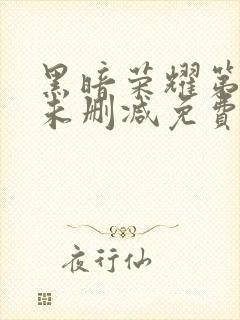 黑暗荣耀第
未删减免費
夜行仙